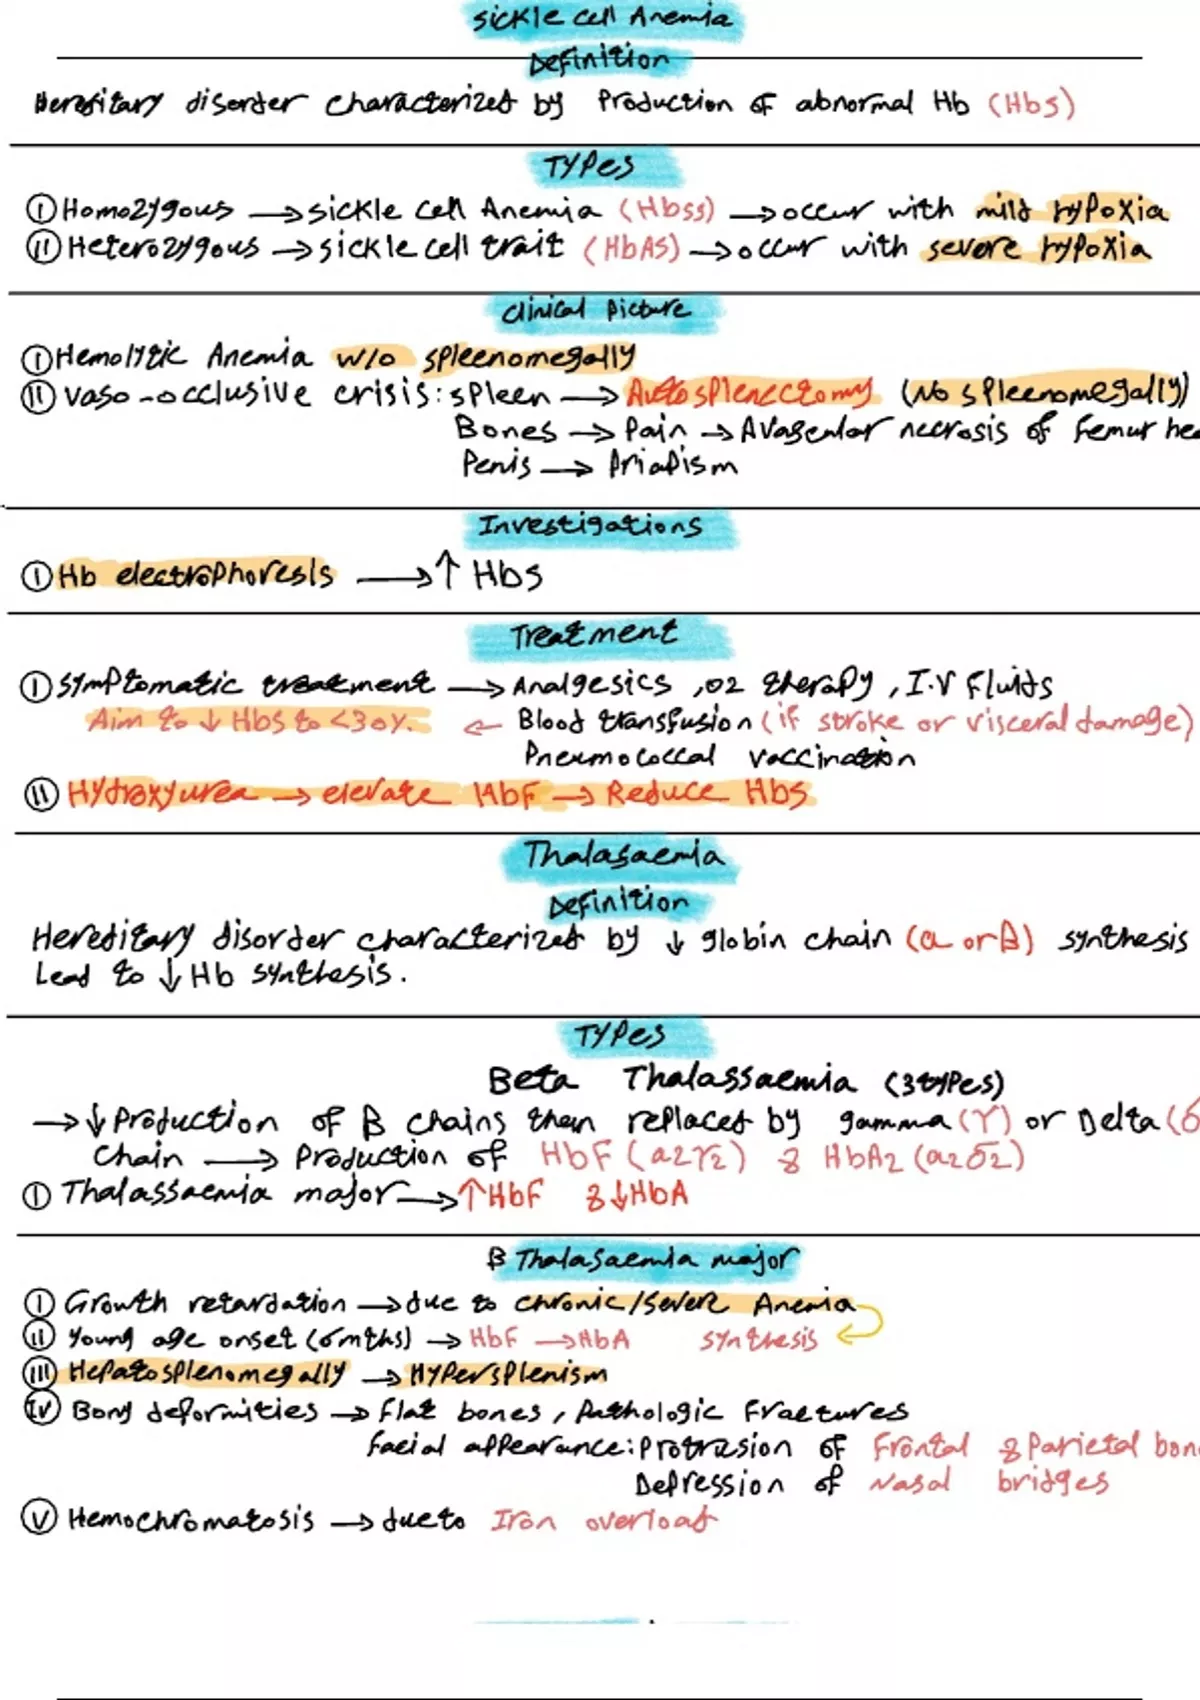 Sickle cell Anemia
Definition
Hereditary disorder characterized by Production of abnormal Hb (Hbs)
Types
I Homozygous → sickle cell Anemia (Hbss) → occur with mild hypoxia
II Heterozygous → sickle cell trait (HbAS) → occur with severe hypoxia
Clinical Picture
I Hemolytic Anemia w/o spleenomegally
II Vaso-occlusive crisis: spleen → Autosplenectomy (No spleenomegally)
Bones → Pain → Avascular necrosis of Femur hea
Penis → Priapism
Investigations
I Hb electrophoresis → ↑ Hbs
Treatment
I Symptomatic treatment → Analgesics, O2 therapy, I.V Fluids
Aim to ↓ Hbs to <30%. ← Blood transfusion (if stroke or visceral damage)
Pneumococcal vaccination
II Hydroxyurea → elevate HbF → Reduce Hbs
Thalasaemia
Definition
Hereditary disorder characterized by ↓ globin chain (α or β) synthesis
Lead to ↓ Hb synthesis.
Types
Beta Thalassaemia (3 types)
→ ↓ Production of β chains then replaced by gamma (γ) or Delta (δ
Chain → Production of HbF (α2γ2) & HbA2 (α2δ2)
I Thalassaemia major → ↑HbF & ↓HbA
β Thalasaemia major
I Growth retardation → due to chronic/severe Anemia
II Young age onset (6mths) → HbF → HbA synthesis
III Hepatosplenomegally → Hypersplenism
IV Bony deformities → Flat bones, Pathologic Fractures
Facial appearance: Protrusion of Frontal & Parietal bon
Depression of Nasal bridges
V Hemochromatosis → due to Iron overload